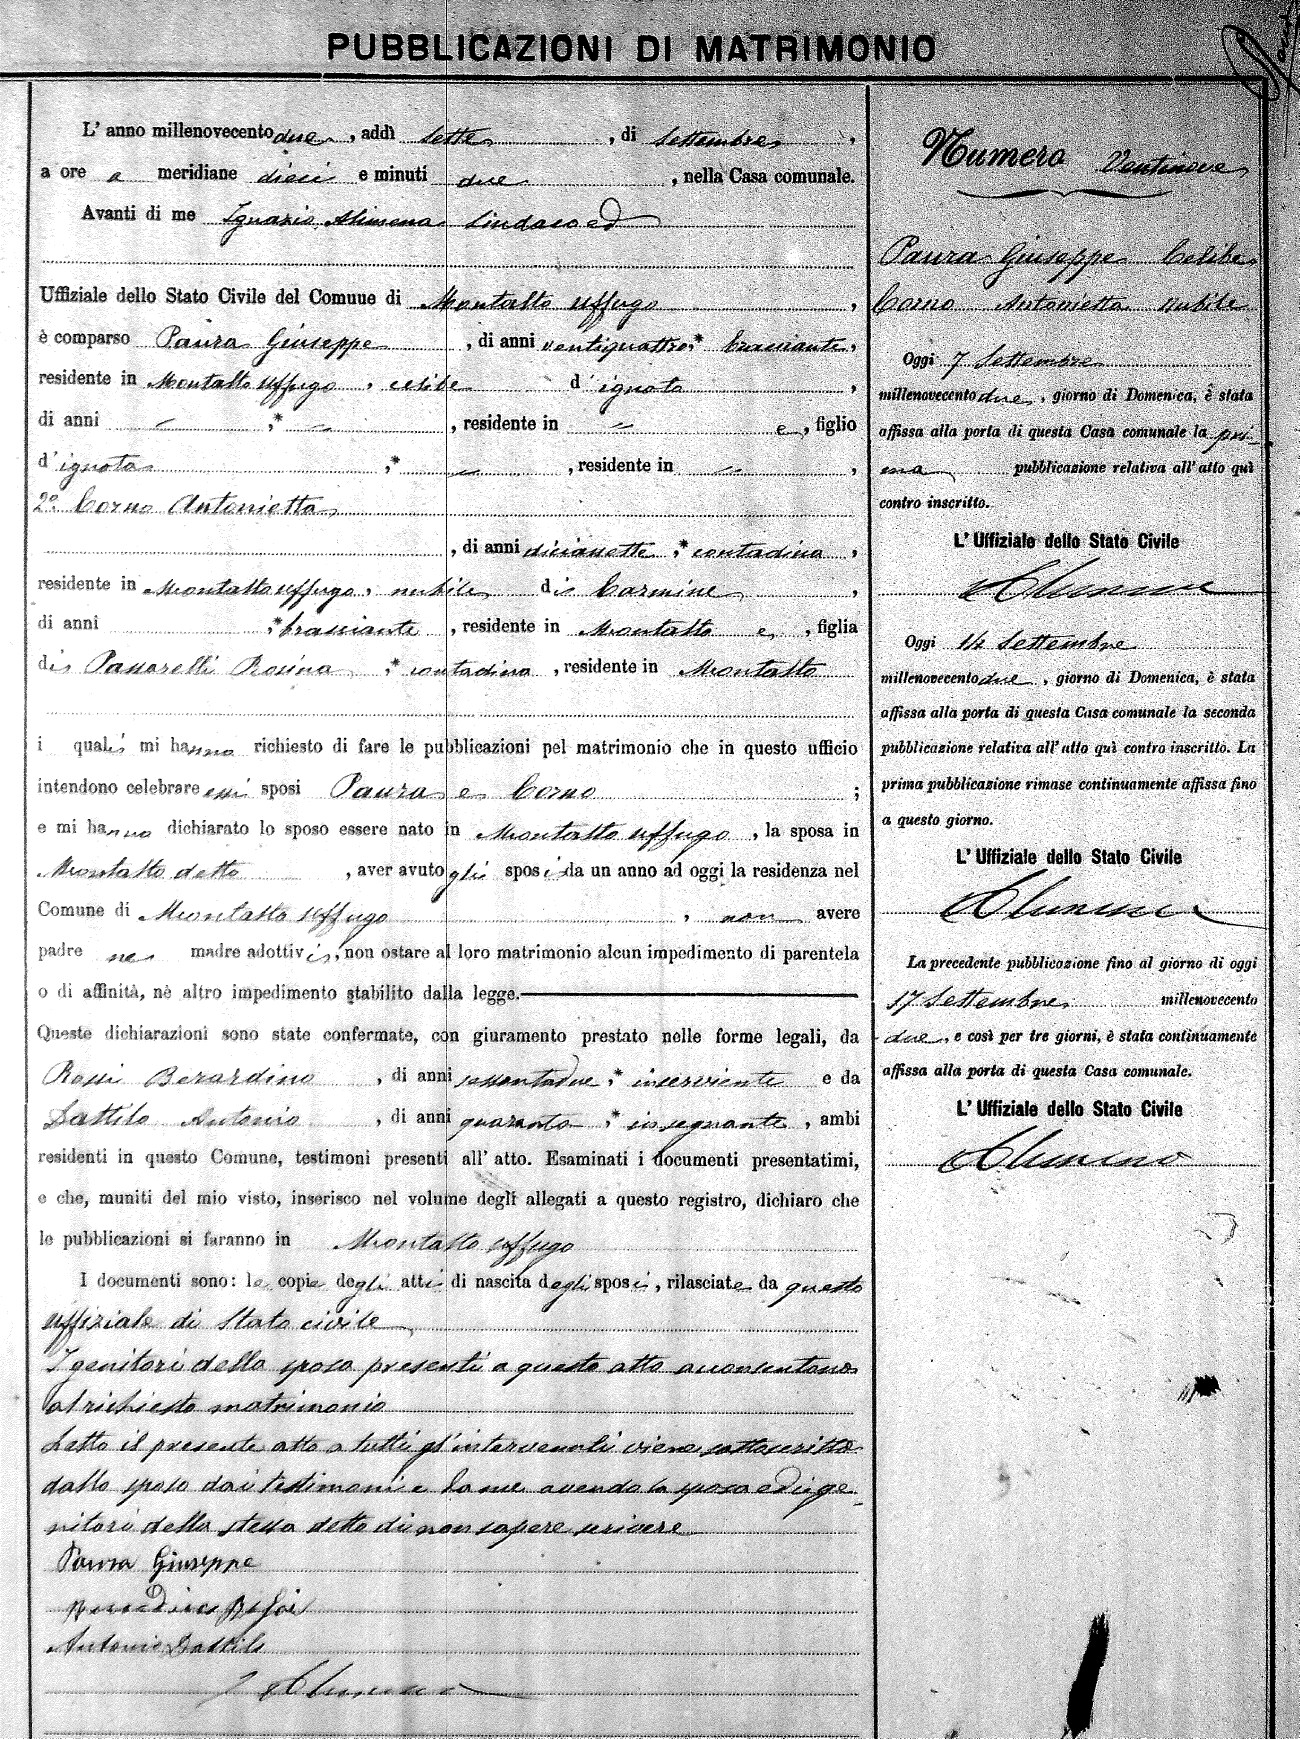 PUBBLICAZIONI DI MATRIMONIO
L' anno millenovecento due, addì sette, di settembre,
a ore a meridiane dieci e minuti due, nella Casa comunale.
Avanti di me Ignazio Alimena Sindaco ed
Uffiziale dello Stato Civile del Comune di Montalto Uffugo,
è comparso Paura Giuseppe, di anni ventiquattro,* bracciante,
residente in Montalto Uffugo, celibe d'ignoto,
di anni " ,* " , residente in " e, figlio
d'ignota ,* " , residente in " ,
2° Corno Antonietta
, di anni diciassette,* contadina,
residente in Montalto Uffugo, nubile di Carmine,
di anni ,* bracciante, residente in Montalto e, figlia
di Passarelli Rosina,* contadina, residente in Montalto
i quali mi hanno richiesto di fare le pubblicazioni pel matrimonio che in questo ufficio
intendono celebrare essi sposi Paura e Corno ;
e mi hanno dichiarato lo sposo essere nato in Montalto Uffugo, la sposa in
Montalto detto, aver avuto gli sposi da un anno ad oggi la residenza nel
Comune di Montalto Uffugo, non avere
padre ne madre adottivi, non ostare al loro matrimonio alcun impedimento di parentela
o di affinità, nè altro impedimento stabilito dalla legge.
Queste dichiarazioni sono state confermate, con giuramento prestato nelle forme legali, da
Rossi Berardino, di anni sessantadue,* inserviente e da
Dattilo Antonio, di anni quaranta,* insegnante, ambi
residenti in questo Comune, testimoni presenti all' atto. Esaminati i documenti presentatimi,
e che, muniti del mio visto, inserisco nel volume degli allegati a questo registro, dichiaro che
le pubblicazioni si faranno in Montalto Uffugo
I documenti sono: le copie degli atti di nascita degli sposi, rilasciate da questo
uffiziale di Stato civile
I genitori della sposa presenti a questo atto acconsentono
al richiesto matrimonio
Letto il presente atto a tutti gl'intervenuti viene sottoscritto
dallo sposo dai testimoni e da me avendo la sposa ed i ge-
nitori della stessa detto di non sapere scrivere
Paura Giuseppe
Antonio Dattilo
I Alimena
Numero Ventinove
Paura Giuseppe Celibe
Corno Antonietta nubile
Oggi 7 Settembre
millenovecento due, giorno di Domenica, è stata
affissa alla porta di questa Casa comunale la pri-
ma pubblicazione relativa all' atto quì
contro inscritto.
L' Uffiziale dello Stato Civile
Alimena
Oggi 14 Settembre
millenovecento due, giorno di Domenica, è stata
affissa alla porta di questa Casa comunale la seconda
pubblicazione relativa all' atto quì contro inscritto. La
prima pubblicazione rimase continuamente affissa fino
a questo giorno.
L' Uffiziale dello Stato Civile
Alimena
La precedente pubblicazione fino al giorno di oggi
17 Settembre millenovecento
due, e così per tre giorni, è stata continuamente
affissa alla porta di questa Casa comunale.
L' Uffiziale dello Stato Civile
Alimena